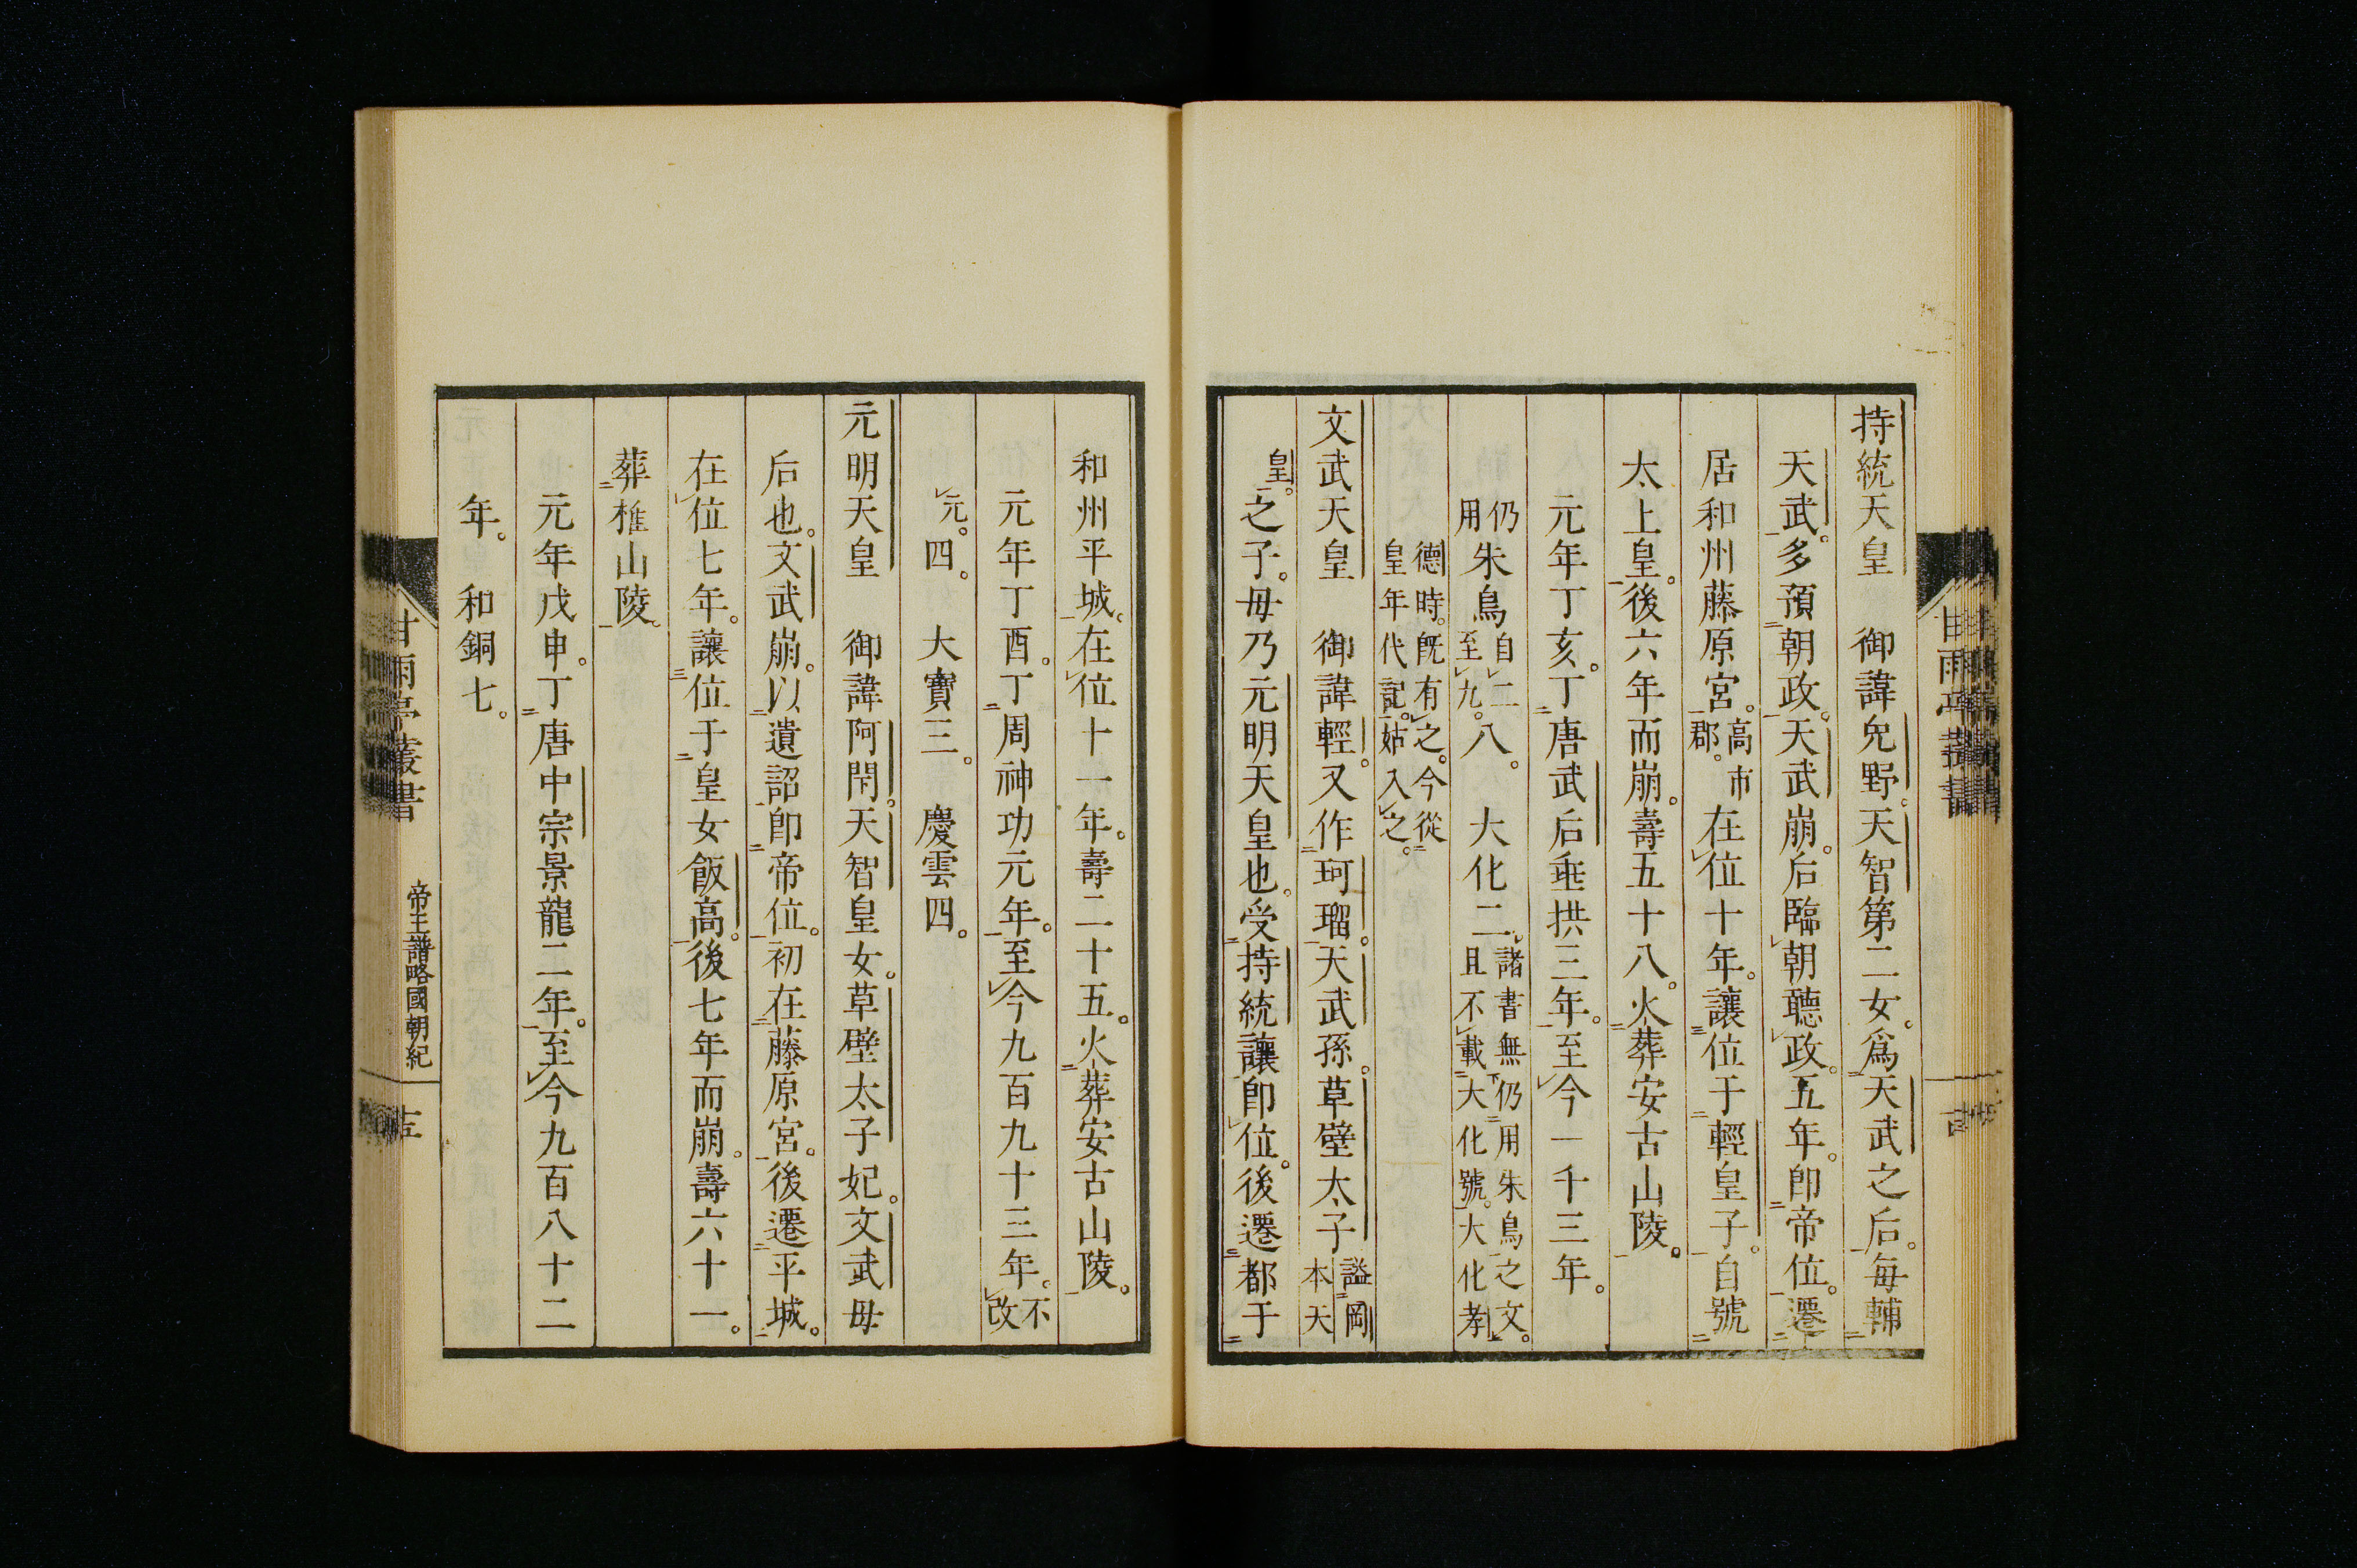 持統天皇　御諱兔野。天智第二女。爲天武之后。每輔
天武。多預朝政。天武崩。后臨朝聽政。五年。卽帝位。遷
居和州藤原宮。高市郡。在位十年。讓位于輕皇子。自號
太上皇。後六年而崩。壽五十八。火葬安古山陵。
元年丁亥。丁唐武后垂拱三年。至今一千三年。
仍用朱鳥自二至九。八。　大化二。諸書無仍用朱鳥之文。且不載大化號。大化孝
德時。既有之。今從皇年代記。姑入之。
文武天皇　御諱輕。又作珂瑠。天武孫。草壁太子謚岡本天
皇。之子。母乃元明天皇也。受持統讓卽位。後遷都于
和州平城。在位十一年。壽二十五。火葬安古山陵。
元年丁酉。丁周神功元年。至今九百九十三年。不改
元。四。　大寶三。　慶雲四。
元明天皇　御諱阿閇。天智皇女。草壁太子妃。文武母
后也。文武崩。以遺詔卽帝位。初在藤原宮。後遷平城。
在位七年。讓位于皇女飯高。後七年而崩。壽六十一。
葬椎山陵。
元年戊申。丁唐中宗景龍二年。至今九百八十二
年。　和銅七。
甘雨亭叢書
帝王譜略國朝紀